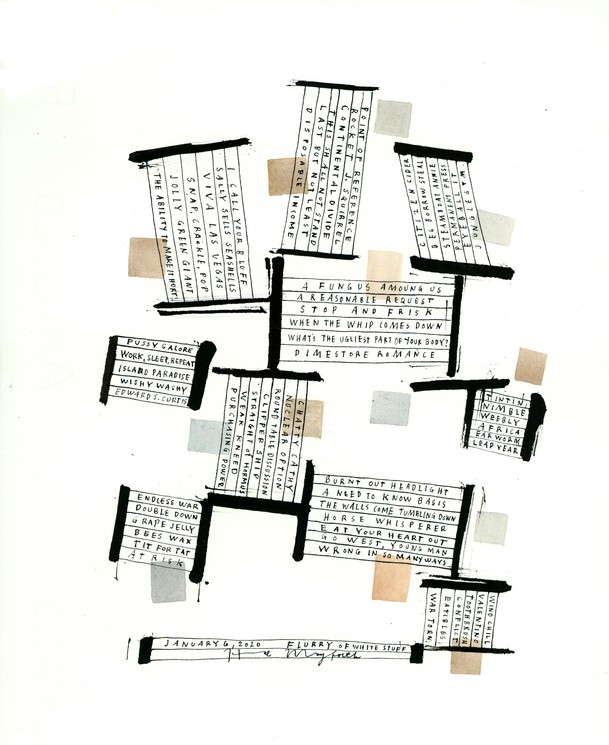 POINT OF REFERENCE
ROCKET J. SQUIRREL
CONTINENTAL DIVIDE
THIS SHALL NOT STAND
LAST BUT NOT LEAST
DISPOSABLE INCOME
I CALL YOUR BLUFF
SALLY SELLS SEASHELLS
VIVA LAS VEGAS
SNAP, CRACKLE, POP
JOLLY GREEN GIANT
THE ABILITY TO MAKE IT
CITIZEN CIDER
BEG BORROW STEAL
STEAMBOAT ANNIE
PERMANENT PRESS
A FUNGUS AMOUNG US
A REASONABLE REQUEST
STOP AND FRISK
WHEN THE WHIP COMES DOWN
WHAT'S THE UGLIEST PART OF YOUR BODY?
DIMESTORE ROMANCE
PUSSY GALORE
WORK, SLEEP, REPEAT
ISLAND PARADISE
WISHY WASHY
EDWARD S. CURTIS
TINTIN
NIMBLE
WEEBLY
AFRICA
EARWORM
LEAP YEAR
CHATTY CATHY
NUCLEAR OPTION
ROUND TABLE DISCUSSION
CLIPPER SHIP
STRAIGH OF HORMUS
WEAK KNEED
PURCHASING POWER
BURNT OUT HEADLIGHT
A NEED TO KNOW BASIS
THE WALLS COME TUMBLING DOWN
HORSE WHISPERER
EAT YOUR HEART OUT
GO WEST, YOUNG MAN
WRONG IN SO MANY WAYS
ENDLESS WAR
DOUBLE DOWN
GRAPE JELLY
BEES WAX
TIT FOR TAT
AT RISK
WIND CHILL
VALENTINE
TOOTHBRUSH
CONFLICT
EATIBLES
WAR TORN
JANUARY 6, 2020 FLURRY OF WHITE STUFF